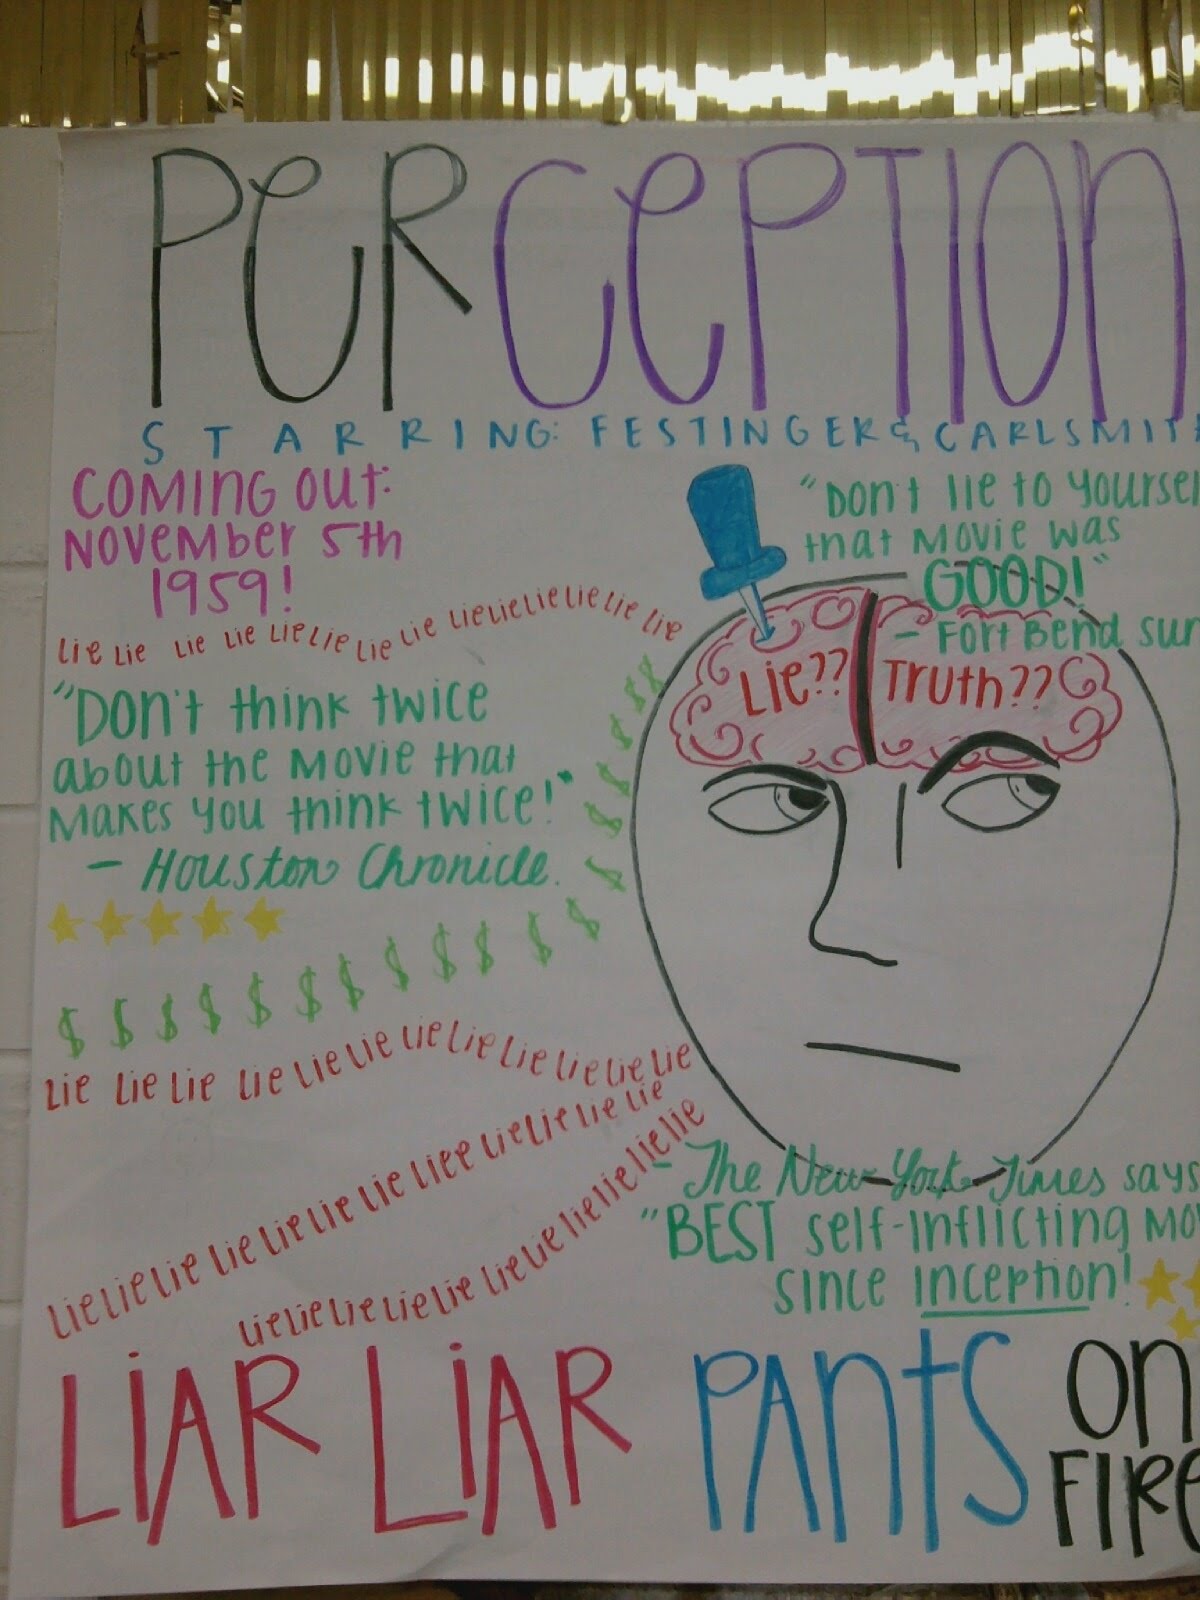 PerCePTION
STARRING: FESTINGER & CARLSMITH
COMING OUT:
NOVEMber 5th
1959!
"DON't lie to yoursel
that MOVIE was
GOOD!"
- Fort Bend Sun
lie lie lie lie lie lie lie lie lie lie lie lie lie lie
Lie?? Truth??
"DON't think twice
about the MOVIE that
MAKES YOU think twice!"
- Houston Chronicle.
$ $ $ $ $ $ $ $ $ $ $ $ $ $ $ $ $ $
Lie Lie Lie Lie Lie Lie Lie Lie Lie Lie Lie Lie
Lie Lie Lie Lie Lie Lie Lie Liee Lie Lie Lie Lie
Lie Lie Lie Lie Lie Lie Lie Lie Lie Lie Lie Lie
- The New York Times says
"BEST self-inflicting MO
since inception!
LIAR LIAR PANTS ON
FIRE